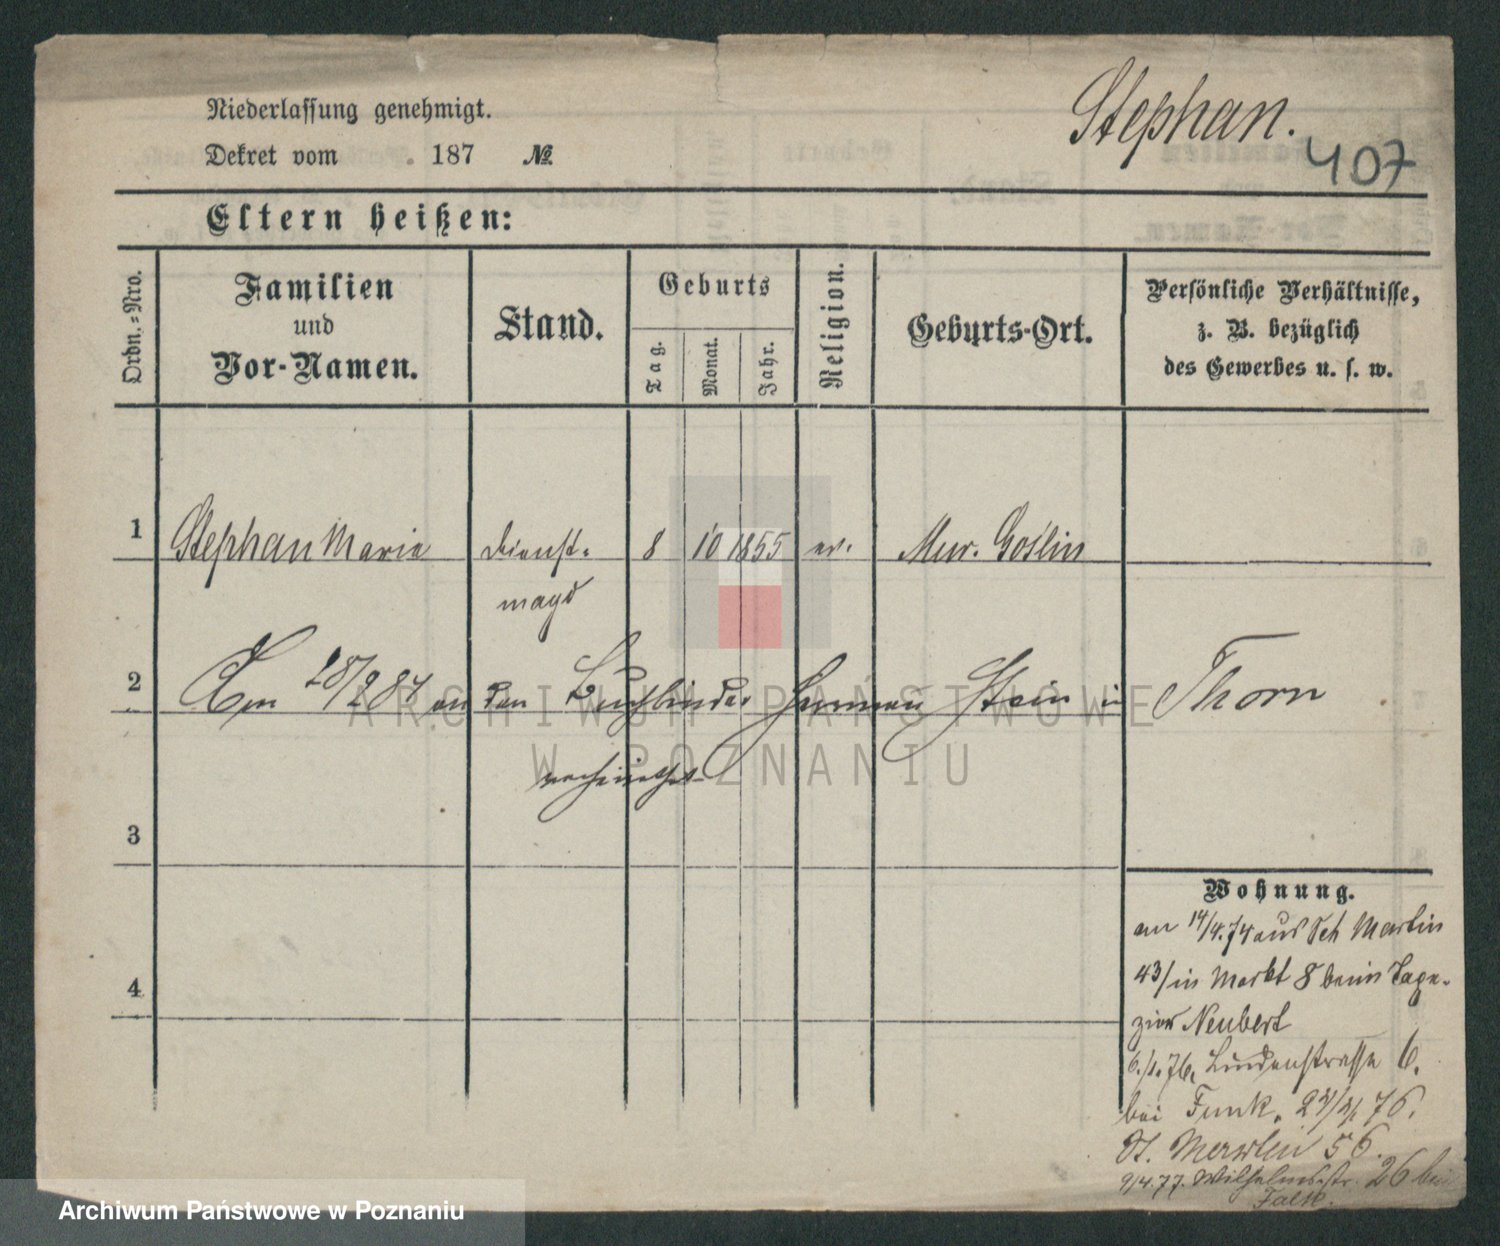 Niederlassung genehmigt.
Stephan.
Dekret vom . 187 №
407
Eltern heißen:
Ordn.-Nro.
Familien
und
Vor-Namen.
Stand.
Geburts
Tag.
Monat.
Jahr.
Religion.
Geburts-Ort.
Persönliche Verhältnisse,
z. B. bezüglich
des Gewerbes u. s. w.
1 Stephan Maria Dienst- 8 10 1855 ev. Mur. Goslin
magd
2 Am 28/2 84 an den Buchbinder Herman Stein in Thorn
verheirathet
3
4
Wohnung.
am 14/4.74 aus Sct Martin
43/ in Markt 8 beim Tape-
zier Neubert
6./1.76, Lindenstrasse 6.
bei Funk. 76.
St. Martin 56.
9/4.77. Wilhelmsstr. 26 bei
Falk.
ARCHIWUM PAŃSTWOWE
W POZNANIU
Archiwum Państwowe w Poznaniu